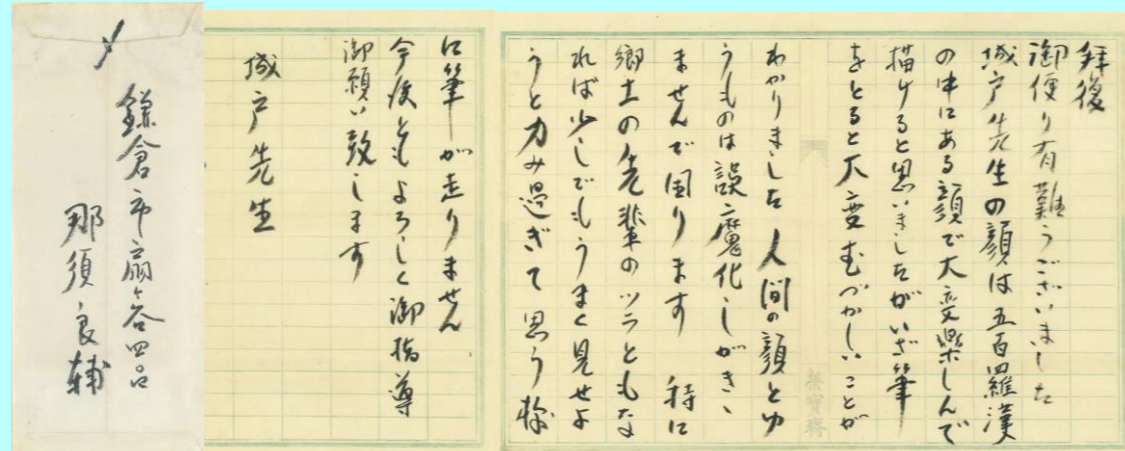 拝復
御便り有難うございました
城戸先生の顔は五百羅漢
の中にある顔で大変楽しんで
描けると思いましたがいざ筆
をとると大変むづかしいことが
榮寳齋
わかりました 人間の顔とゆ
うものは誤魔化しがきゝ
ませんで困ります 特に
郷土の先輩のツラともな
れば少しでもうまく見せよ
うと力み過ぎて思う様
に筆が走りません
今後ともよろしく御指導
御願い致します
城戸先生
〆
鎌倉市扇ヶ谷四
那須良輔